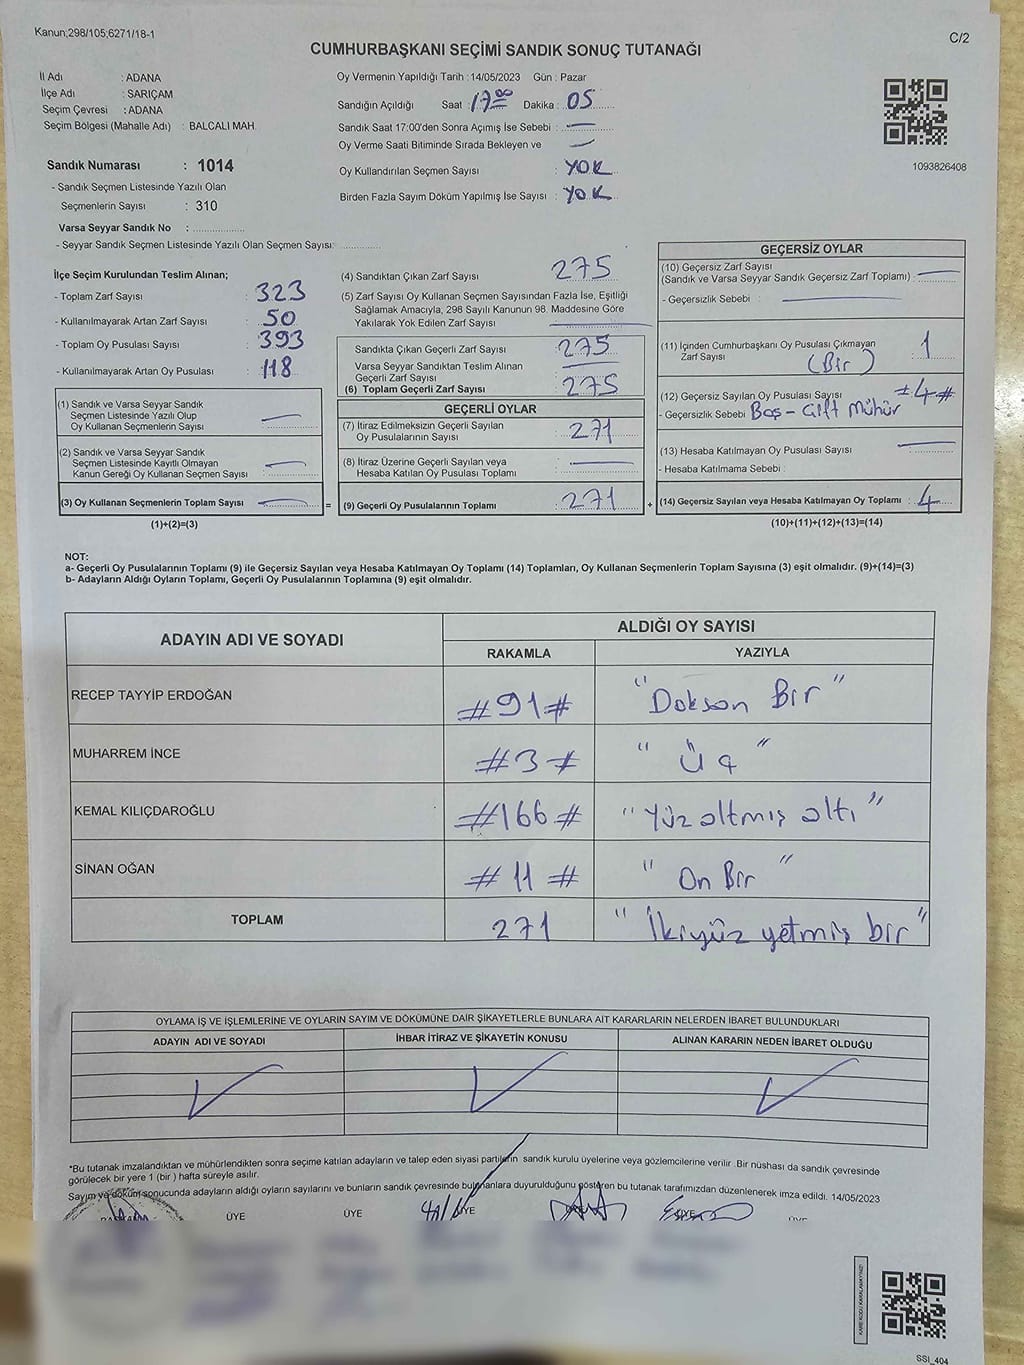 Kanun;298/105;6271/18-1
C/2
CUMHURBAŞKANI SEÇİMİ SANDIK SONUÇ TUTANAĞI
İl Adı : ADANA
İlçe Adı : SARIÇAM
Seçim Çevresi : ADANA
Seçim Bölgesi (Mahalle Adı) : BALCALI MAH.
Sandık Numarası : 1014
- Sandık Seçmen Listesinde Yazılı Olan
Seçmenlerin Sayısı : 310
Varsa Seyyar Sandık No :
- Seyyar Sandık Seçmen Listesinde Yazılı Olan Seçmen Sayısı:
Oy Vermenin Yapıldığı Tarih : 14/05/2023 Gün : Pazar
Sandığın Açıldığı Saat : 17:00 Dakika : 05
Sandık Saat 17:00'den Sonra Açımış İse Sebebi : —
Oy Verme Saati Bitiminde Sırada Bekleyen ve —
Oy Kullandırılan Seçmen Sayısı : YOK
Birden Fazla Sayım Döküm Yapılmış İse Sayısı : YOK
1093826408
İlçe Seçim Kurulundan Teslim Alınan;
- Toplam Zarf Sayısı : 323
- Kullanılmayarak Artan Zarf Sayısı : 50
- Toplam Oy Pusulası Sayısı : 393
- Kullanılmayarak Artan Oy Pusulası : 118
(1) Sandık ve Varsa Seyyar Sandık
Seçmen Listesinde Yazılı Olup
Oy Kullanan Seçmenlerin Sayısı : —
(2) Sandık ve Varsa Seyyar Sandık
Seçmen Listesinde Kayıtlı Olmayan
Kanun Gereği Oy Kullanan Seçmen Sayısı : —
(3) Oy Kullanan Seçmenlerin Toplam Sayısı : —
(1)+(2)=(3)
(4) Sandıktan Çıkan Zarf Sayısı : 275
(5) Zarf Sayısı Oy Kullanan Seçmen Sayısından Fazla İse, Eşitliği
Sağlamak Amacıyla, 298 Sayılı Kanunun 98. Maddesine Göre
Yakılarak Yok Edilen Zarf Sayısı : —
Sandıkta Çıkan Geçerli Zarf Sayısı : 275
Varsa Seyyar Sandıktan Teslim Alınan
Geçerli Zarf Sayısı : —
(6) Toplam Geçerli Zarf Sayısı : 275
GEÇERLİ OYLAR
(7) İtiraz Edilmeksizin Geçerli Sayılan
Oy Pusulalarının Sayısı : 271
(8) İtiraz Üzerine Geçerli Sayılan veya
Hesaba Katılan Oy Pusulası Toplamı : —
= (9) Geçerli Oy Pusulalarının Toplamı : 271 +
GEÇERSİZ OYLAR
(10) Geçersiz Zarf Sayısı
(Sandık ve Varsa Seyyar Sandık Geçersiz Zarf Toplamı) : —
- Geçersizlik Sebebi : —
(11) İçinden Cumhurbaşkanı Oy Pusulası Çıkmayan
Zarf Sayısı : 1
(Bir)
(12) Geçersiz Sayılan Oy Pusulası Sayısı : #4#
- Geçersizlik Sebebi : Boş - Çift Mühür
(13) Hesaba Katılmayan Oy Pusulası Sayısı : —
- Hesaba Katılmama Sebebi :
(14) Geçersiz Sayılan veya Hesaba Katılmayan Oy Toplamı : 4
(10)+(11)+(12)+(13)=(14)
NOT:
a- Geçerli Oy Pusulalarının Toplamı (9) ile Geçersiz Sayılan veya Hesaba Katılmayan Oy Toplamı (14) Toplamları, Oy Kullanan Seçmenlerin Toplam Sayısına (3) eşit olmalıdır. (9)+(14)=(3)
b- Adayların Aldığı Oyların Toplamı, Geçerli Oy Pusulalarının Toplamına (9) eşit olmalıdır.
ADAYIN ADI VE SOYADI
ALDIĞI OY SAYISI
RAKAMLA YAZIYLA
RECEP TAYYİP ERDOĞAN #91# "Doksan Bir"
MUHARREM İNCE #3# "Üç"
KEMAL KILIÇDAROĞLU #166# "Yüz altmış altı"
SİNAN OĞAN #11# "On Bir"
TOPLAM 271 "İkiyüz yetmiş bir"
OYLAMA İŞ VE İŞLEMLERİNE VE OYLARIN SAYIM VE DÖKÜMÜNE DAİR ŞİKAYETLERLE BUNLARA AİT KARARLARIN NELERDEN İBARET BULUNDUKLARI
ADAYIN ADI VE SOYADI İHBAR İTİRAZ VE ŞİKAYETİN KONUSU ALINAN KARARIN NEDEN İBARET OLDUĞU
*Bu tutanak imzalandıktan ve mühürlendikten sonra seçime katılan adayların ve talep eden siyasi partilerin sandık kurulu üyelerine veya gözlemcilerine verilir. Bir nüshası da sandık çevresinde
görülecek bir yere 1 (bir ) hafta süreyle asılır.
Sayım ve döküm sonucunda adayların aldığı oyların sayılarını ve bunların sandık çevresinde bulunanlara duyurulduğunu gösteren bu tutanak tarafımızdan düzenlenerek imza edildi. 14/05/2023
BAŞKAN ÜYE ÜYE ÜYE ÜYE ÜYE
SSİ_404